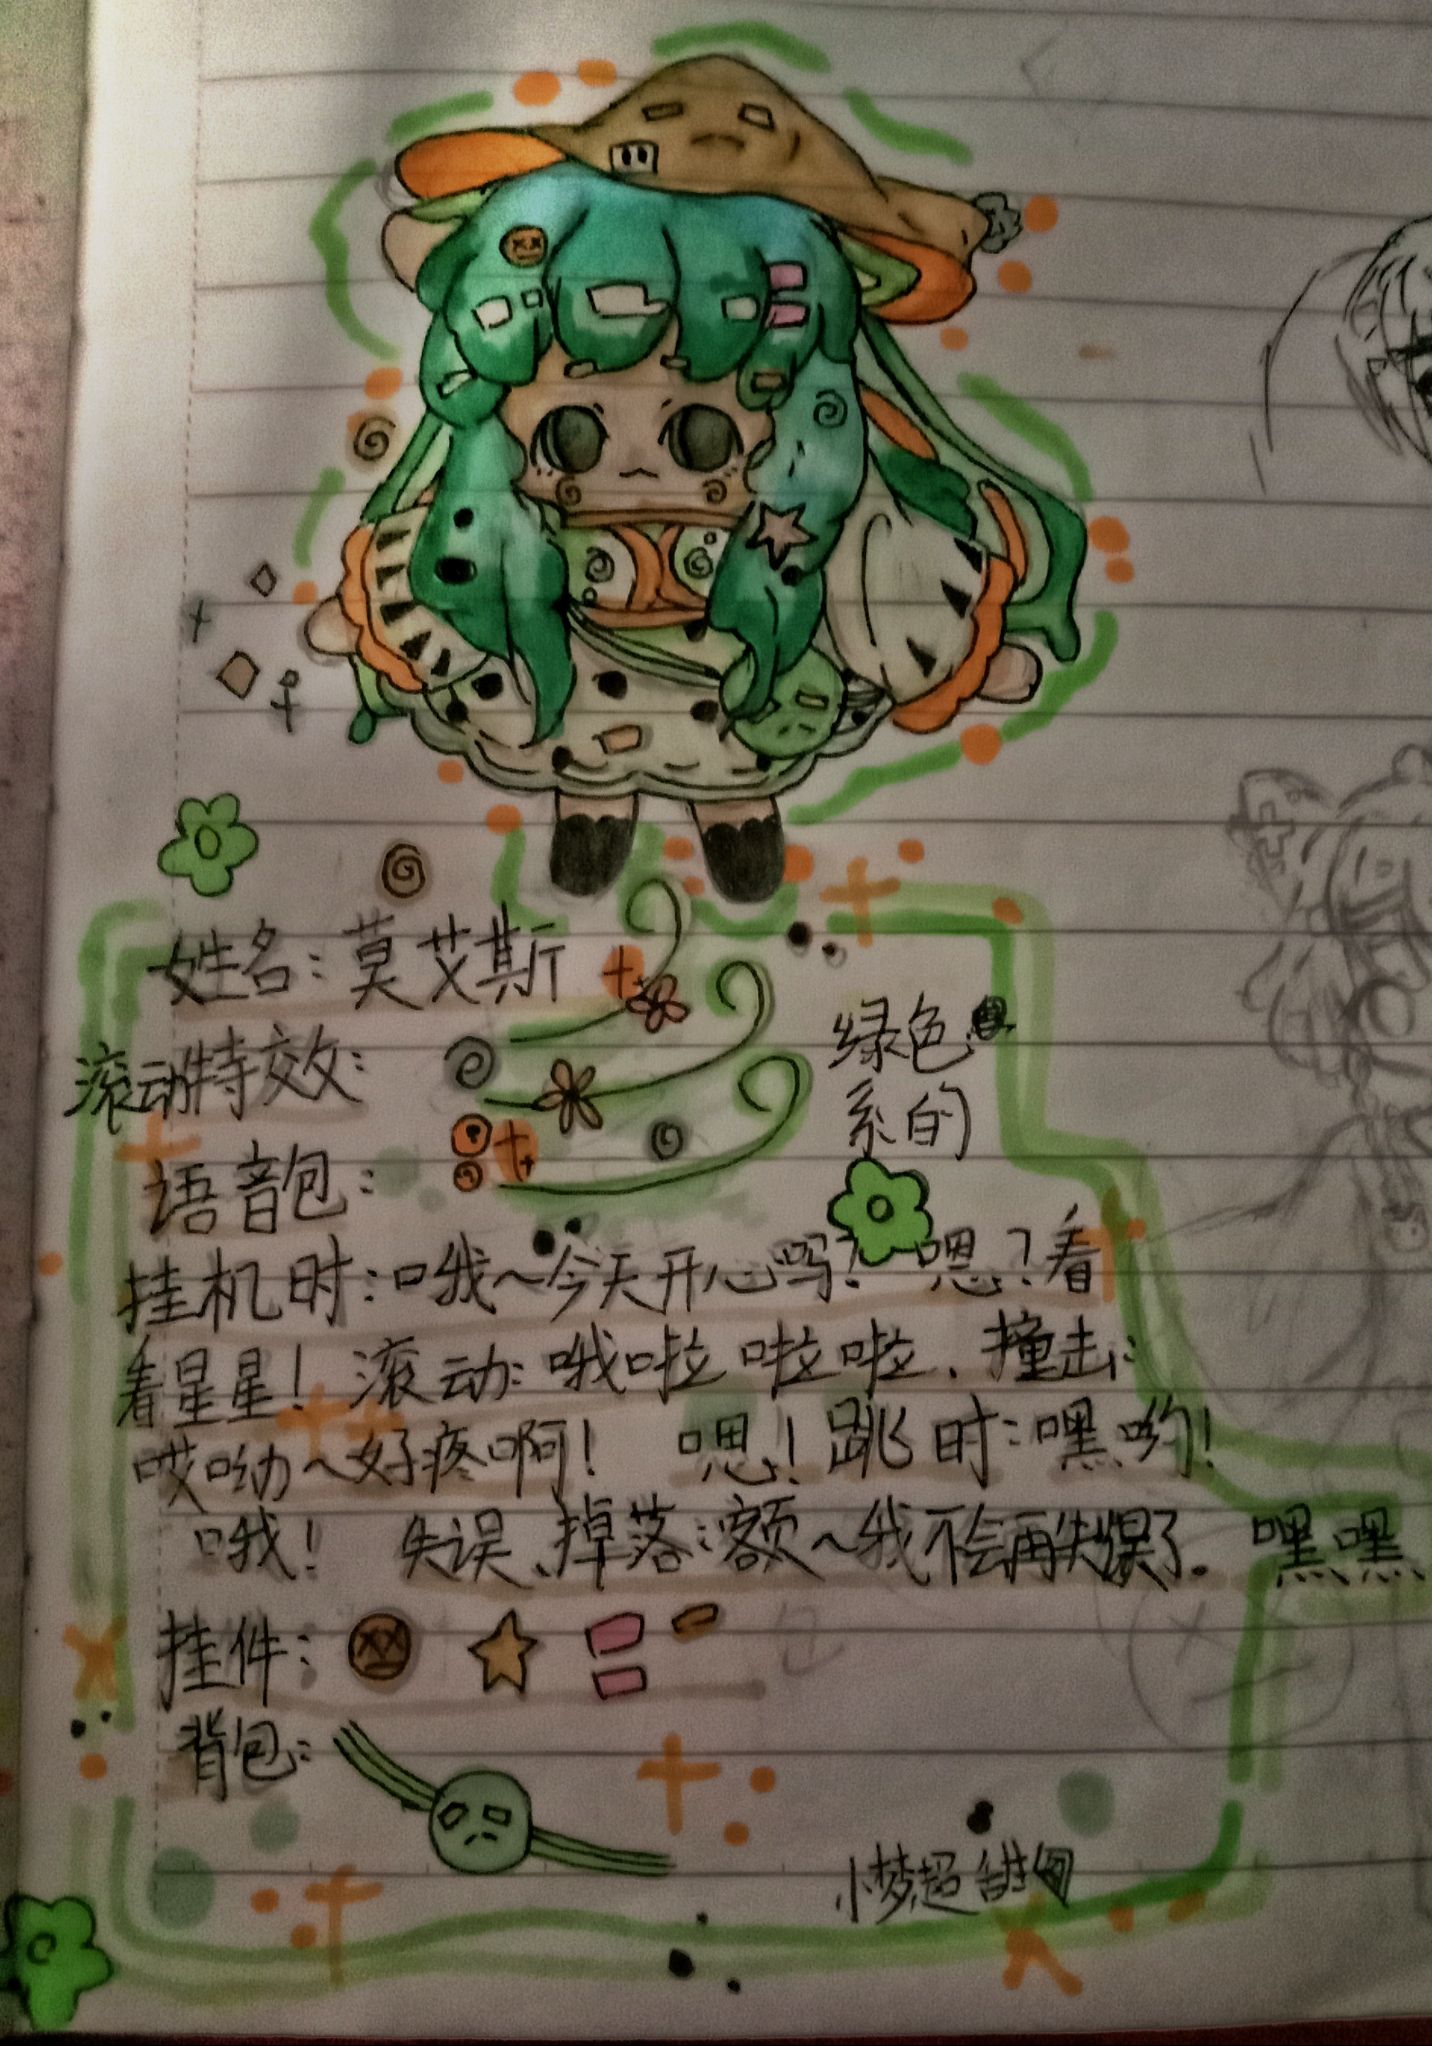 姓名：莫艾斯
滚动特效：
绿色
系的
语音包：
挂机时：哦～今天开心吗？ 嗯？看
看星星！滚动：哦啦啦啦、撞击：
哎呦～好疼啊！ 嗯！跳时：嘿哟！
哦！ 失误、掉落：额～我不会再失误了。嘿嘿
挂件：
背包：
小梦超